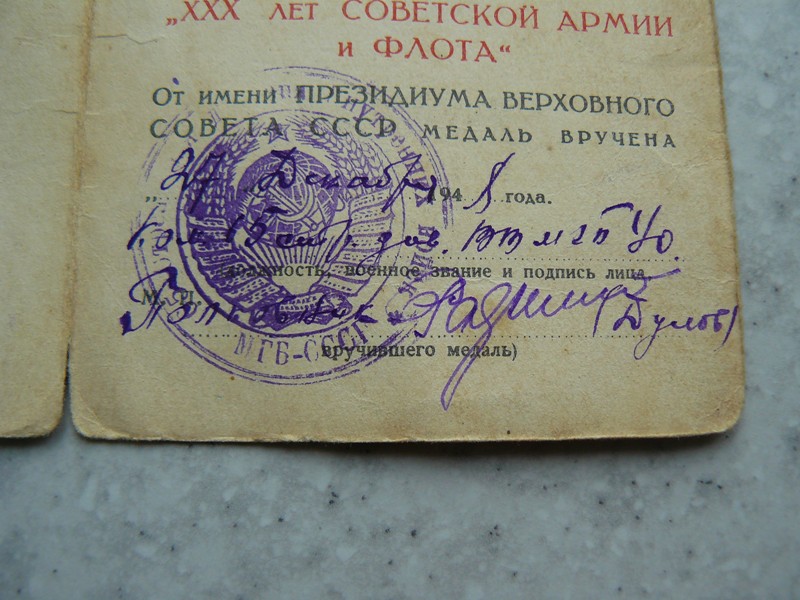 „XXX ЛЕТ СОВЕТСКОЙ АРМИИ
И ФЛОТА“
ОТ ИМЕНИ ПРЕЗИДИУМА ВЕРХОВНОГО
СОВЕТА СССР МЕДАЛЬ ВРУЧЕНА
„27 Декабря 1948 года.
Ком. 15
должность, военное звание и подпись лица,
М. П. Полковник (Дулов)
вручившего медаль)
МГБ-СССР